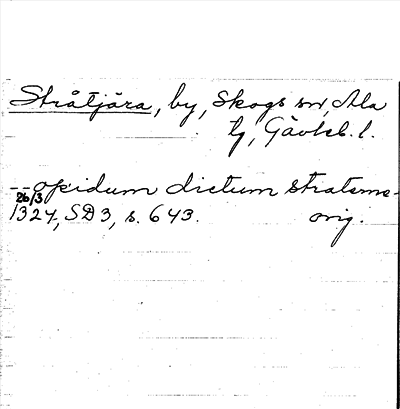 Stråtjära, by, Skogs sn, Ala
tg, Gävleb. l.
-- opidum dictum stratema-
26/3
1324, SD3, s. 643. orig.